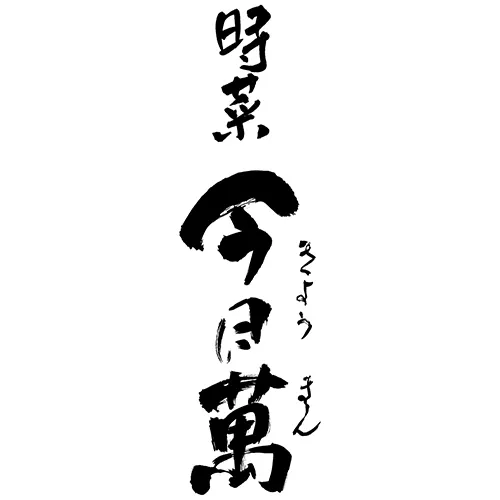 時菜
今日萬
きょう
まん